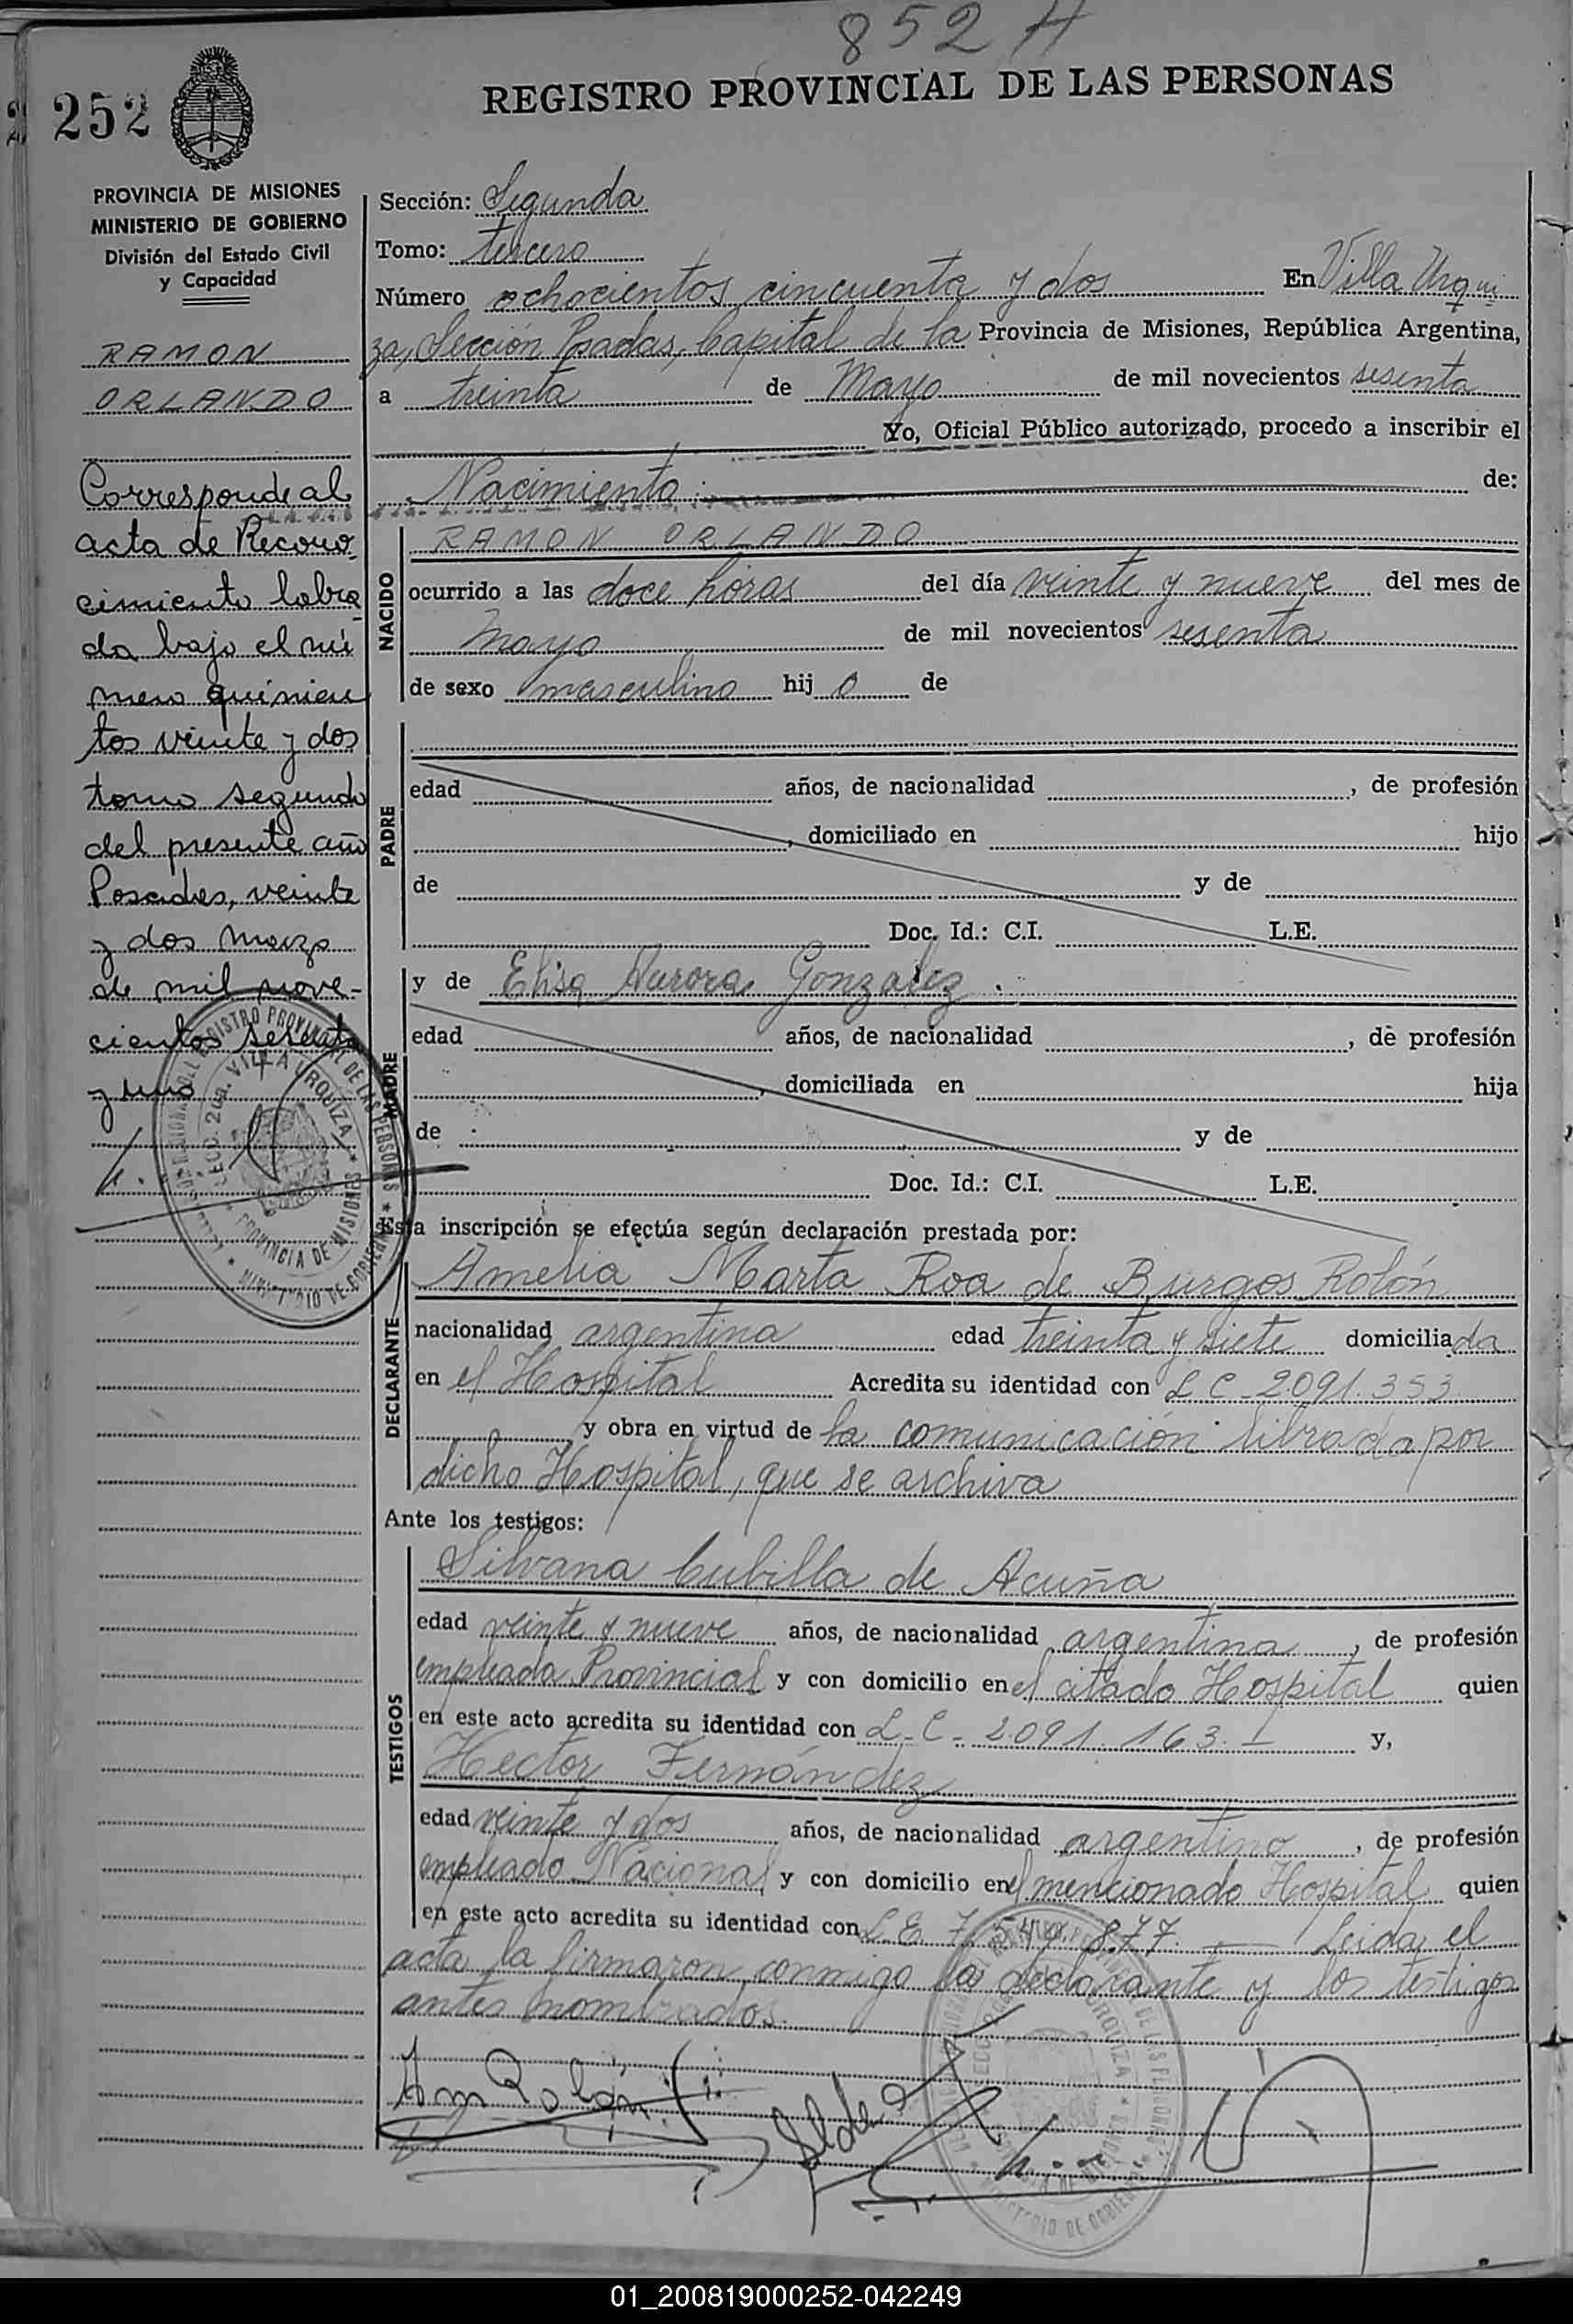 852 H
252
REGISTRO PROVINCIAL DE LAS PERSONAS
PROVINCIA DE MISIONES
MINISTERIO DE GOBIERNO
División del Estado Civil
y Capacidad
RAMON
ORLANDO
Corresponde al
acta de Recono
cimiento labra
da bajo el nú
mero quinien
tos veinte y dos
tomo segundo
del presente año
Posadas, veinte
y dos marzo
de mil nove-
cientos sesenta
y uno
Sección: Segunda
Tomo: tercero
Número ochocientos cincuenta y dos En Villa Urqui
za, Sección Posadas, Capital de la Provincia de Misiones, República Argentina,
a treinta de Mayo de mil novecientos sesenta
Yo, Oficial Público autorizado, procedo a inscribir el
Nacimiento de:
NACIDO
RAMON ORLANDO
ocurrido a las doce horas del día veinte y nueve del mes de
mayo de mil novecientos sesenta
de sexo masculino hij o de
PADRE
edad años, de nacionalidad , de profesión
, domiciliado en hijo
de y de
Doc. Id.: C.I. L.E.
MADRE
y de Elisa Aurora Gonzalez .
edad años, de nacionalidad , de profesión
, domiciliada en hija
de y de
Doc. Id.: C.I. L.E.
Esta inscripción se efectúa según declaración prestada por:
DECLARANTE
Amelia Marta Roa de Burgos Rolón
nacionalidad argentina edad treinta y siete domiciliada
en el Hospital Acredita su identidad con L C - 2091.353
y obra en virtud de la comunicación librada por
dicho Hospital, que se archiva
Ante los testigos:
TESTIGOS
Silvana Cubilla de Acuña
edad veinte y nueve años, de nacionalidad argentina , de profesión
empleada Provincial y con domicilio en el citado Hospital quien
en este acto acredita su identidad con L - C - 2091.163.- y,
Hector Fernández
edad veinte y dos años, de nacionalidad argentino , de profesión
empleado Nacional y con domicilio en el mencionado Hospital quien
en este acto acredita su identidad con L.E. 7.547.877. — Leida el
acta la firmaron conmigo la declarante y los testigos
antes nombrados.
REGISTRO PROVINCIAL DE LAS PERSONAS
SECC. 2da. VILLA URQUIZA
PROVINCIA DE MISIONES
MINISTERIO DE GOBIERNO
01_200819000252-042249